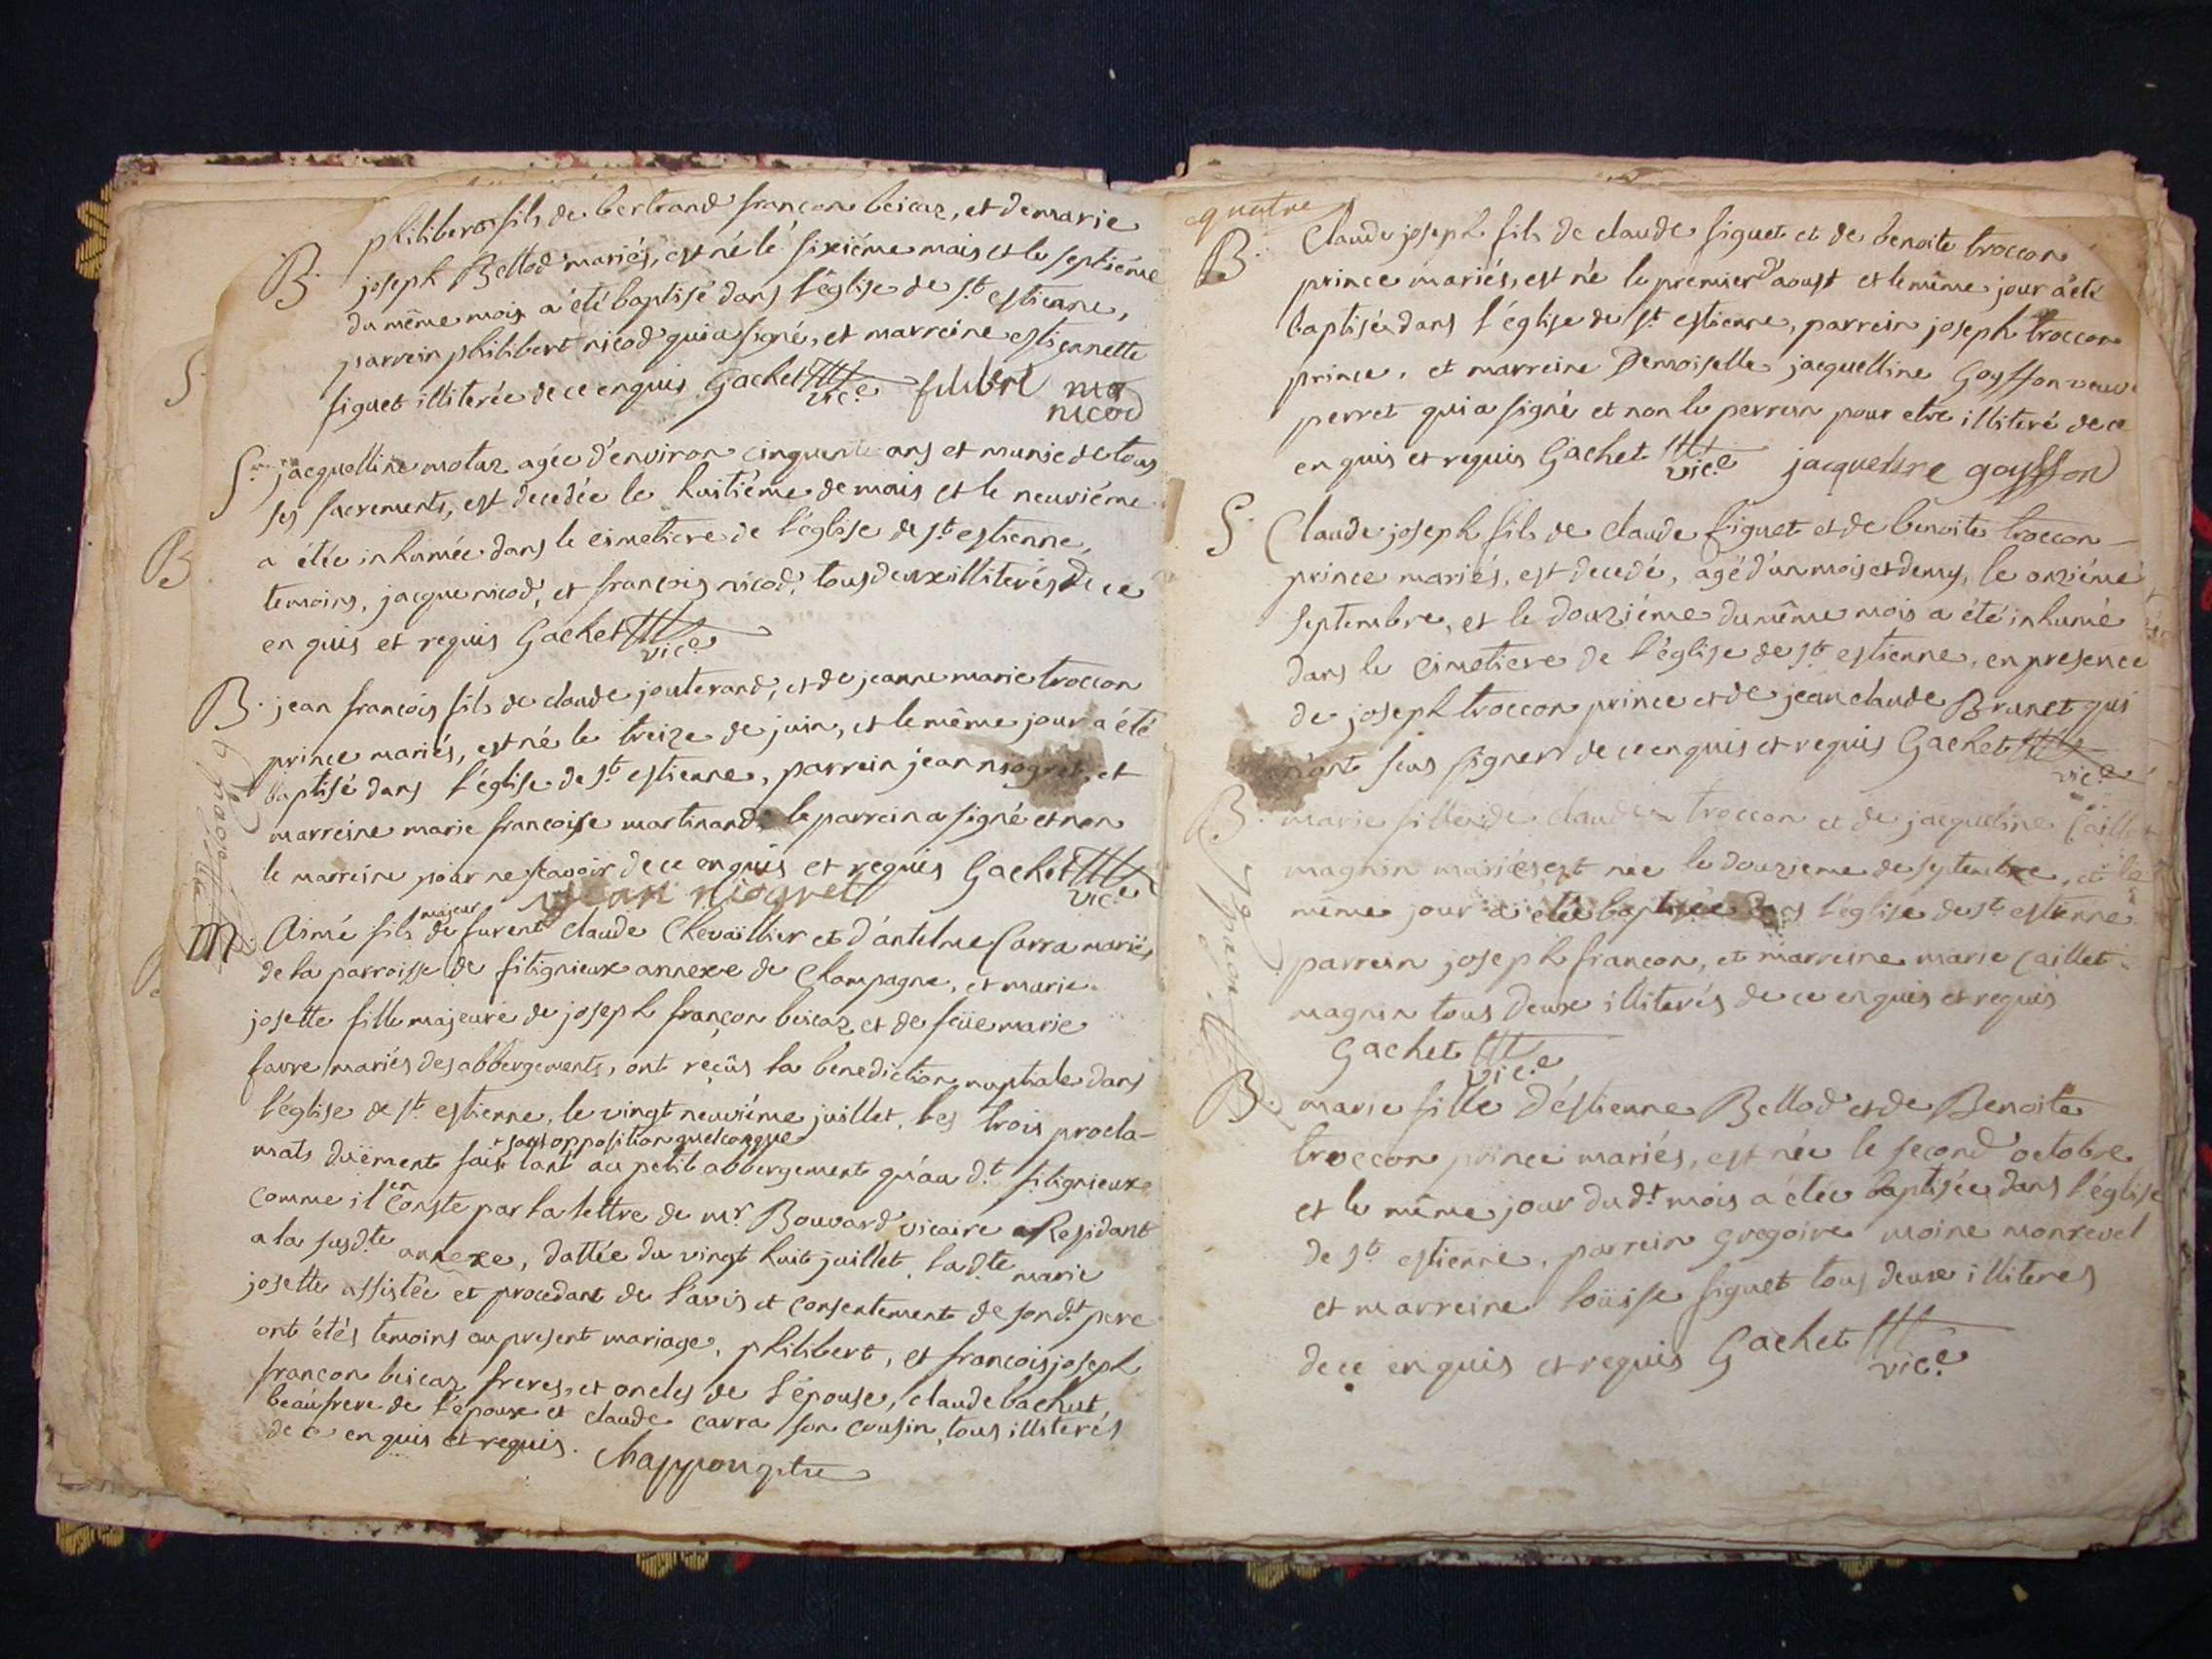 B. philibert fils de bertrand françon beicaz, et de marie
joseph Bellod mariés, est né le sixiéme mais et le septiéme
du même mois a été baptisé dans l'église de st estienne,
parrein philibert nicod qui a signé, et marreine estiennette
figuet illiterée de ce enquis Gachet vice filibert
nicod
S. jacquelline motuz agée d'environ cinquente ans et munie de tous
ses sacrements, est decedée le huitiéme de mais et le neuviéme
a étée inhumée dans le cimetiere de l'église de st estienne,
temoins, jacque nicod, et françois nicod, tous deux illiterés de ce
en quis et requis Gachet vice
B. jean françois fils de claude jouterand, et de jeanne marie troccon
prince mariés, est né le treize de juin, et le même jour a été
baptisé dans l'église de st estienne, parrein jean niogret, et
marreine marie françoise martinand, le parrein a signé et non
le marreine pour ne scavoir de ce enquis et requis Gachet
vice
jean niogret
M. Aimé fils majeur de furent claude Chevaillier et d'antelme Carra mariés
de la parroisse de fitignieux annexe de Champagne, et marie
josette fille majeure de joseph françon beicaz et de feüe marie
favre mariés des abbergements, ont reçûs la benediction nuptiale dans
l'église de st estienne, le vingt neuviéme juillet, les trois procla-
sans opposition quelconque
mats düement fait tant au petit abbergement qu'au dt fitignieux
comme il en conste par la lettre de mr Bouvard vicaire Residant
a la susdte annexe, dattée du vingt huit juillet, ladte marie
josette assistée et procedant de l'avis et consentement de sondt pere
ont étés temoins au present mariage, philibert, et françois joseph
françon beicaz freres, et oncles de l'épouse, claude bachut,
beaufrere de l'époux et claude carra son cousin, tous illiterés
de ce en quis et requis. Chappon ptre
quatre
B. Claude joseph fils de claude figuet et de benoite troccon
prince mariés, est né le premier d'aoust et le même jour a été
baptisé dans l'église de st estienne, parrein joseph troccon
prince, et marreine Demoiselle jacquelline Goyffon veuve
perret qui a signé et non le perrein pour etre illiteré de ce
en quis et requis Gachet vice goyffon
S. Claude joseph fils de claude figuet et de benoite troccon
prince mariés, est decedé, agé d'un mois et demy, le onziéme
septembre, et le douziéme du même mois a été inhumé
dans le cimetiere de l'église de st estienne, en presence
de joseph troccon prince et de jean claude Brunet qui
n'ont sceu signer de ce enquis et requis Gachet
vice
B. marie fille de claude troccon et de jacqueline Caillet
magnin mariés est née le douzieme de septembre, et le
même jour a étée baptisée dans l'église de st estienne
parrein joseph françon, et marreine marie caillet
magnin tous deux illiterés de ce enquis et requis
Gachet vice
B. marie fille d'éstienne Bellod et de Benoite
troccon prince mariés, est née le second octobre
et le même jour dudt mois a étée baptisée dans l'église
de st estienne, parrein gregoire moine monrevel
et marreine loüise figuet tous deux illiteres
de ce enquis et requis Gachet
vice